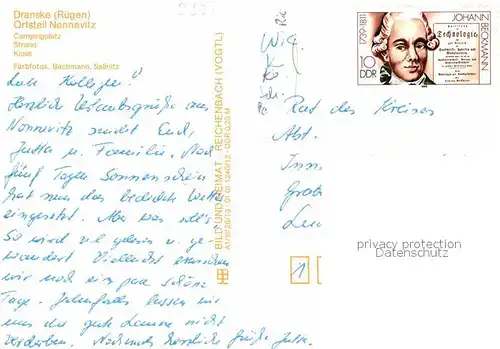 Dranske (Rügen)
Ortsteil Nonnevitz
Campingplatz
Strand
Kiosk
Farbfotos: Bachmann, Saßnitz
Liebe Kollegen!
Herzliche Urlaubsgrüße aus
Nonnevitz sendet Euch
Jutta u. Familie. Nach
fünf Tagen Sonnenschein
hat nun das bedeckte Wetter
eingesetzt. Aber was soll's
So wird viel gelesen u. ge-
wandert. Vielleicht erwischen
wir noch ein paar schöne
Tage. Jedenfalls lassen wir
uns die gute Laune nicht
verderben. Nochmals herzliche Grüße Jutta
BILD UND HEIMAT REICHENBACH (VOGTL)
A1/III/26/13 01 01 1240/12 DDR 0,20 M
1739-1811
JOHANN BECKMANN
Technologie
10
DDR
Rat des Kreises
Abt.
privacy protection
Datenschutz